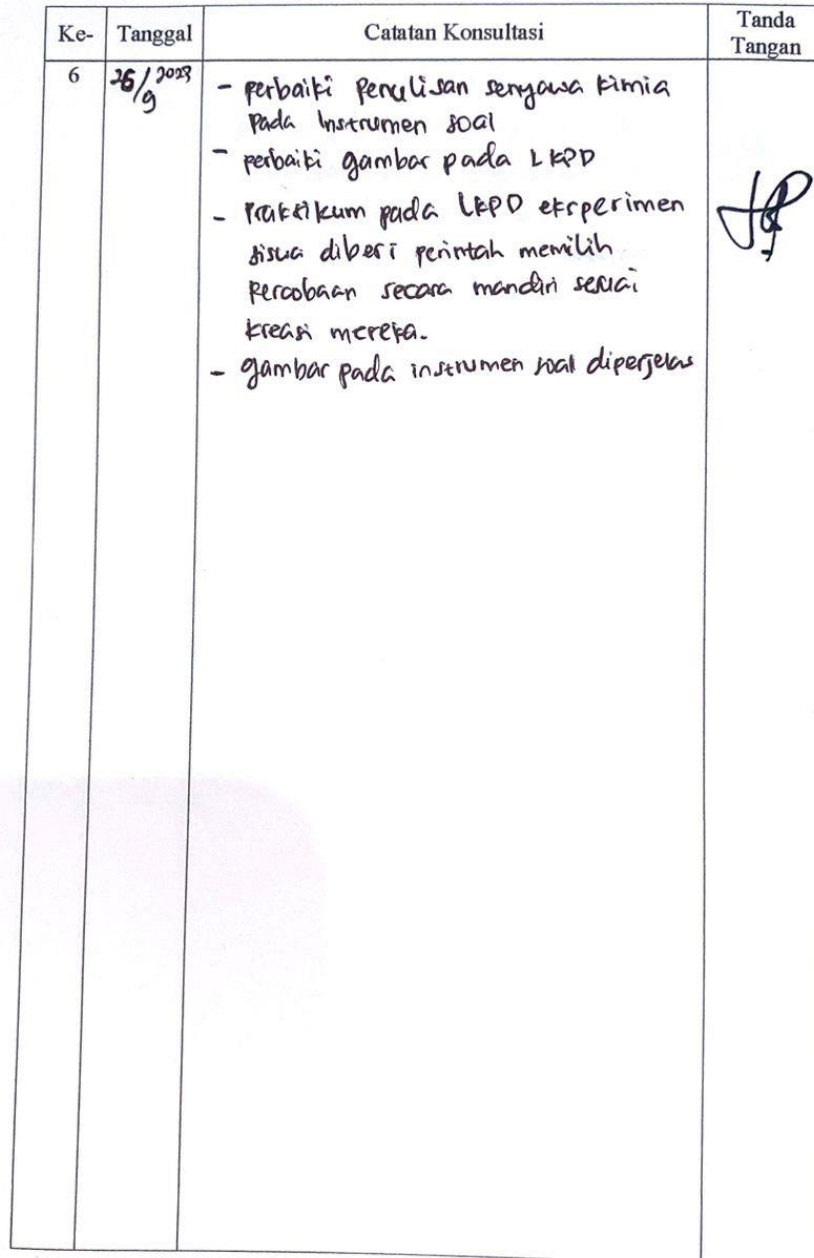 Ke- Tanggal Catatan Konsultasi Tanda Tangan
6 26/9 2023 - perbaiki penulisan senyawa kimia
pada instrumen soal
- perbaiki gambar pada LKPD
- Praktikum pada LKPD eksperimen
siswa diberi perintah memilih
percobaan secara mandiri sesuai
kreasi mereka.
- gambar pada instrumen soal diperjelas